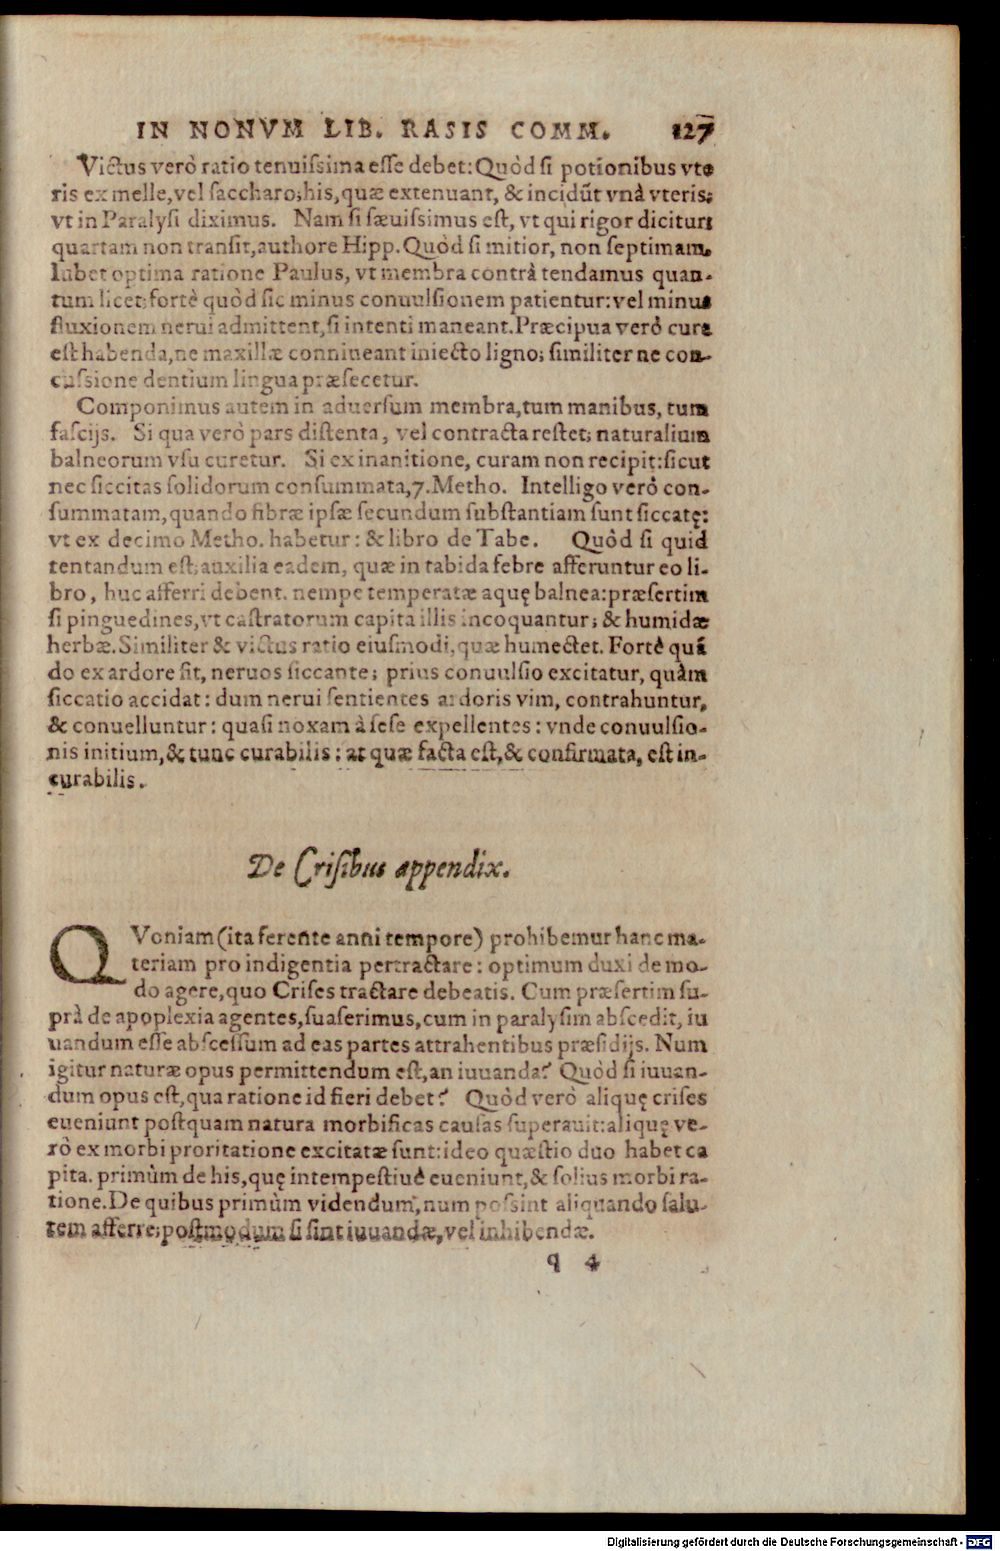 IN NONVM LIB. RASIS COMM. 127
Victus verò ratio tenuissima esse debet: Quòd si potionibus vte
ris ex melle, vel saccharo; his, quæ extenuant, & incidūt vnà vteris:
vt in Paralysi diximus. Nam si sæuissimus est, vt qui rigor dicitur:
quartam non transit, authore Hipp. Quòd si mitior, non septimam.
Iubet optima ratione Paulus, vt membra contrà tendamus quan-
tum licet: fortè quòd sic minus conuulsionem patientur: vel minus
fluxionem nerui admittent, si intenti maneant. Præcipua verò cura
est habenda, ne maxillæ conniueant iniecto ligno; similiter ne con-
cussione dentium lingua præsecetur.
Componimus autem in aduersum membra, tum manibus, tum
fascijs. Si qua verò pars distenta, vel contracta restet; naturalium
balneorum vsu curetur. Si ex inanitione, curam non recipit: sicut
nec siccitas solidorum consummata, 7. Metho. Intelligo verò con-
summatam, quando fibræ ipsæ secundum substantiam sunt siccatę:
vt ex decimo Metho. habetur: & libro de Tabe. Quòd si quid
tentandum est; auxilia eadem, quæ in tabida febre afferuntur eo li-
bro, huc afferri debent. nempe temperatæ aquę balnea: præsertim
si pinguedines, vt castratorum capita illis incoquantur; & humidæ
herbæ. Similiter & victus ratio eiusmodi, quæ humectet. Fortè quā
do ex ardore fit, neruos siccante; prius conuulsio excitatur, quàm
siccatio accidat: dum nerui sentientes ardoris vim, contrahuntur,
& conuelluntur: quasi noxam à sese expellentes: vnde conuulsio-
nis initium, & tunc curabilis: at quæ facta est, & confirmata, est in-
curabilis.
De Crisibus appendix.
QVoniam (ita ferente anni tempore) prohibemur hanc ma-
teriam pro indigentia pertractare: optimum duxi de mo-
do agere, quo Crises tractare debeatis. Cum præsertim su-
prà de apoplexia agentes, suaserimus, cum in paralysim abscedit, iu
uandum esse abscessum ad eas partes attrahentibus præsidijs. Num
igitur naturæ opus permittendum est, an iuuanda? Quòd si iuuan-
dum opus est, qua ratione id fieri debet? Quòd verò aliquę crises
eueniunt postquam natura morbificas causas superauit: aliquę ve-
rò ex morbi proritatione excitatæ sunt: ideo quæstio duo habet ca
pita. primùm de his, quę intempestiuè eueniunt, & solius morbi ra-
tione. De quibus primùm videndum, num possint aliquando salu-
tem afferre: postmodum si sint iuuandæ, vel inhibendæ.
q 4
Digitalisierung gefördert durch die Deutsche Forschungsgemeinschaft - DFG